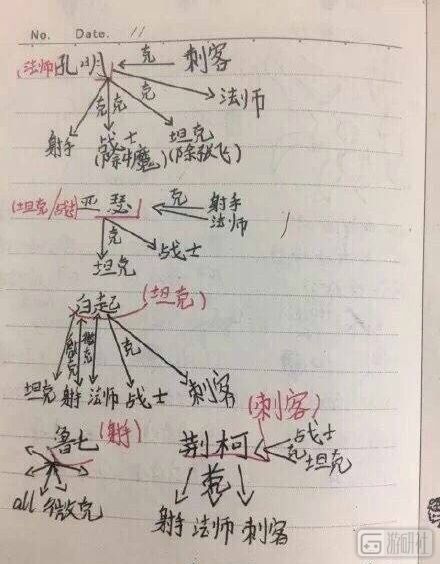 No. Date. 11
(法师)孔明 克 刺客
克 克 克 法师
射手 战士 坦克
(除牛魔) (除张飞)
(坦克/战士) 亚瑟 克 射手
法师
克
坦克 战士
白起 (坦克)
微克 微克 克
坦克 射手 法师 战士 刺客
鲁七 (射) 荆柯 (刺客)
克 战士
坦克
all 微克 克
射手 法师 刺客
游研社